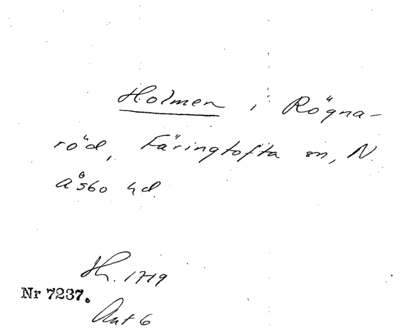 Holmen i Rögna-
röd, Färingtofta sn, N.
Åsbo hd.
Hh. 1719
Nr 7237.
Ant 6